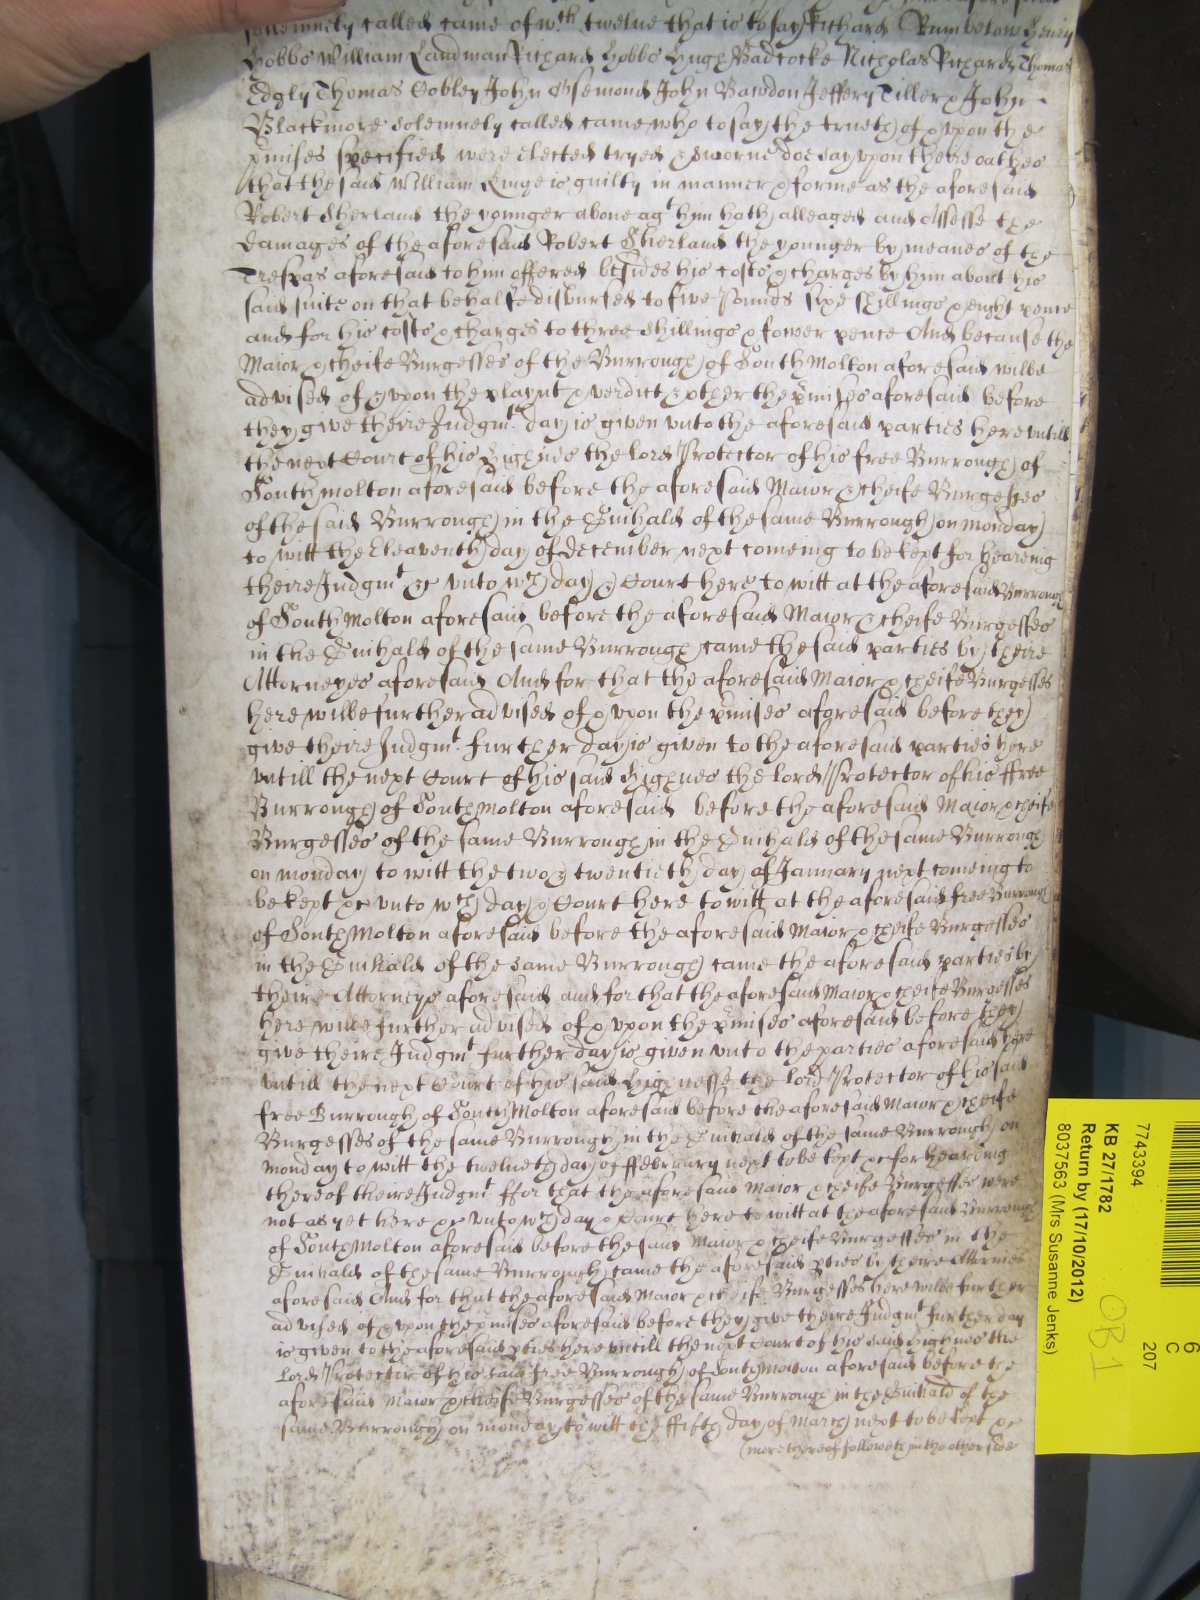 solemnely called came of wth. twelve that is to say Richard Rumbelow Henry
Hobbs William Landman Richard Hobbs Hugh Badcocke Nicholas Richards Thomas
Edgly Thomas Cobley John Osemond John Bawdon Jeffery Tiller & John
Blackmore solemnely called came who to say the trueth of & upon the
pmises specified were elected tryed & sworne doe say upon theire oathes
that the said William Kinge is guilty in manner & forme as the aforesaid
Robert Sherland the younger above agt him hath alleaged and Assesse the
damages of the aforesaid Robert Sherland the younger by meanes of the
Trespas aforesaid to him offered besides his costs & charges by him about his
said suite on that behalfe disbursed to five Pounds sixe shillings & eight pence
and for his costs & charges to three shillings & fower pence And because the
Maior & cheife Burgesses of the Burrough of South Molton aforesaid wilbe
advised of & upon the playnt & verdict & other the pmises aforesaid before
they give theire Judgmt. day is given unto the aforesaid parties here untill
the next Court of his Highnes the lord Protector of his free Burrough of
South Molton aforesaid before the aforesaid Maior & cheife Burgesses
of the said Burrough in the Guihald of the same Burrough on monday
to witt the Eleaventh day of December next comeing to be kept for heareing
theire Judgmt &c unto wch day & Court here to witt at the aforesaid Burrough
of South Molton aforesaid before the aforesaid Maior & cheife Burgesses
in the Guihald of the same Burrough came the said parties by theire
Attorneyes aforesaid And for that the aforesaid Maior & cheife Burgesses
here wilbe further advised of & upon the pmises aforesaid before they
give theire Judgmt. further day is given to the aforesaid parties here
untill the next Court of his said Highnes the lord Protector of his ffree
Burrough of South Molton aforesaid before the aforesaid Maior & cheife
Burgesses of the same Burrough in the Guihald of the same Burrough
on monday to witt the two & twentieth day of January next comeing to
be kept &c unto wch day & Court here to witt at the aforesaid free Burrough
of South Molton aforesaid before the aforesaid Maior & cheife Burgesses
in the Guihald of the same Burrough came the aforesaid parties by
theire Attorneys aforesaid and for that the aforesaid Maior & cheife Burgesses
here wilbe further advised of & upon the pmises aforesaid before they
give theire Judgmt further day is given unto the parties aforesaid here
untill the next Court of his said Highnesse the lord Protector of his said
free Burrough of South Molton aforesaid before the aforesaid Maior & cheife
Burgesses of the same Burrough in the Guihald of the same Burrough on
monday to witt the twelveth day of ffebruary next to be kept &c for heareing
thereof theire Judgmt ffor that the aforesaid Maior & cheife Burgesses were
not as yet here &c unto wch day & Court here to witt at the aforesaid Burrough
of South Molton aforesaid before the said Maior & cheife Burgesses in the
Guihald of the same Burrough came the aforesaid pties by theire Attornies
aforesaid And for that the aforesaid Maior & cheife Burgesses here wilbe further
advised of & upon the pmises aforesaid before they give theire Judgmt further day
is given to the aforesaid pties here untill the next Court of his said Highnes the
Lord Protector of his said free Burrough of South Molton aforesaid before the
aforesaid Maior & cheife Burgesses of the same Burrough in the Guihald of the
same Burrough on monday to witt the ffifth day of March next to be kept &c
(more thereof followeth in the other side
7743394
KB 27/1782
Return by (17/10/2012)
8037563 (Mrs Susanne Jenks)
6
C
207
OB 1